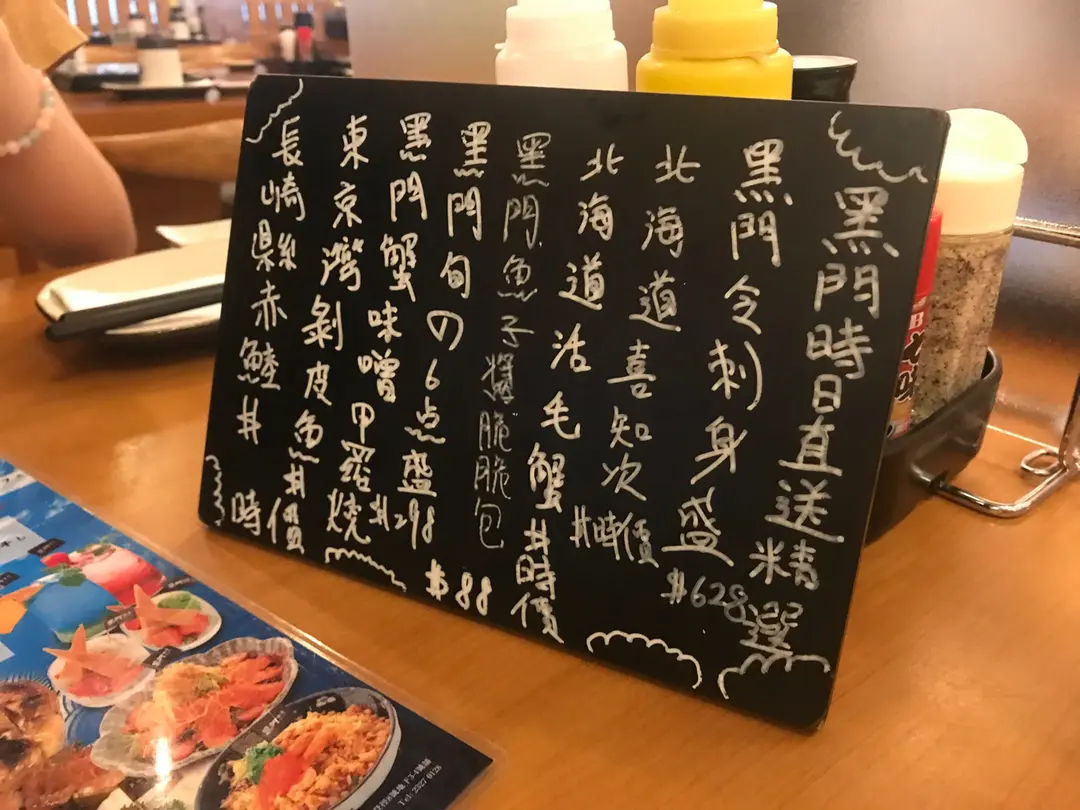 黑門時日直送精選
黑門令刺身盛 $628
北海道喜知次 $時價
北海道活毛蟹 $時價
黑門魚子醬脆脆包 $88
黑門旬の6点盛 $298
黑門蟹味噌甲羅燒
東京灣剝皮魚 $
長崎縣赤鯥 $
時價
F3-4號舖
Tel: 2327 0128